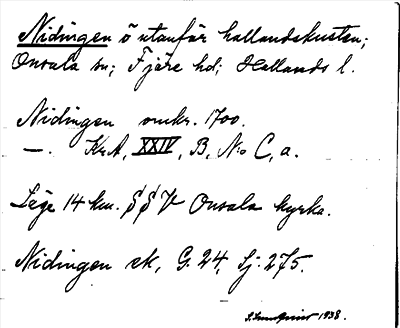 Nidingen ö utanför hallandskusten;
Onsala sn; Fjäre hd; Hallands l.
Nidingen omkr. 1700.
—. KrA, XXIV, B, N:o C, a.
Läge 14 km. S S V Onsala kyrka.
Nidingen ek, G. 24, Sj. 275.
S. Lundqvist 1938.